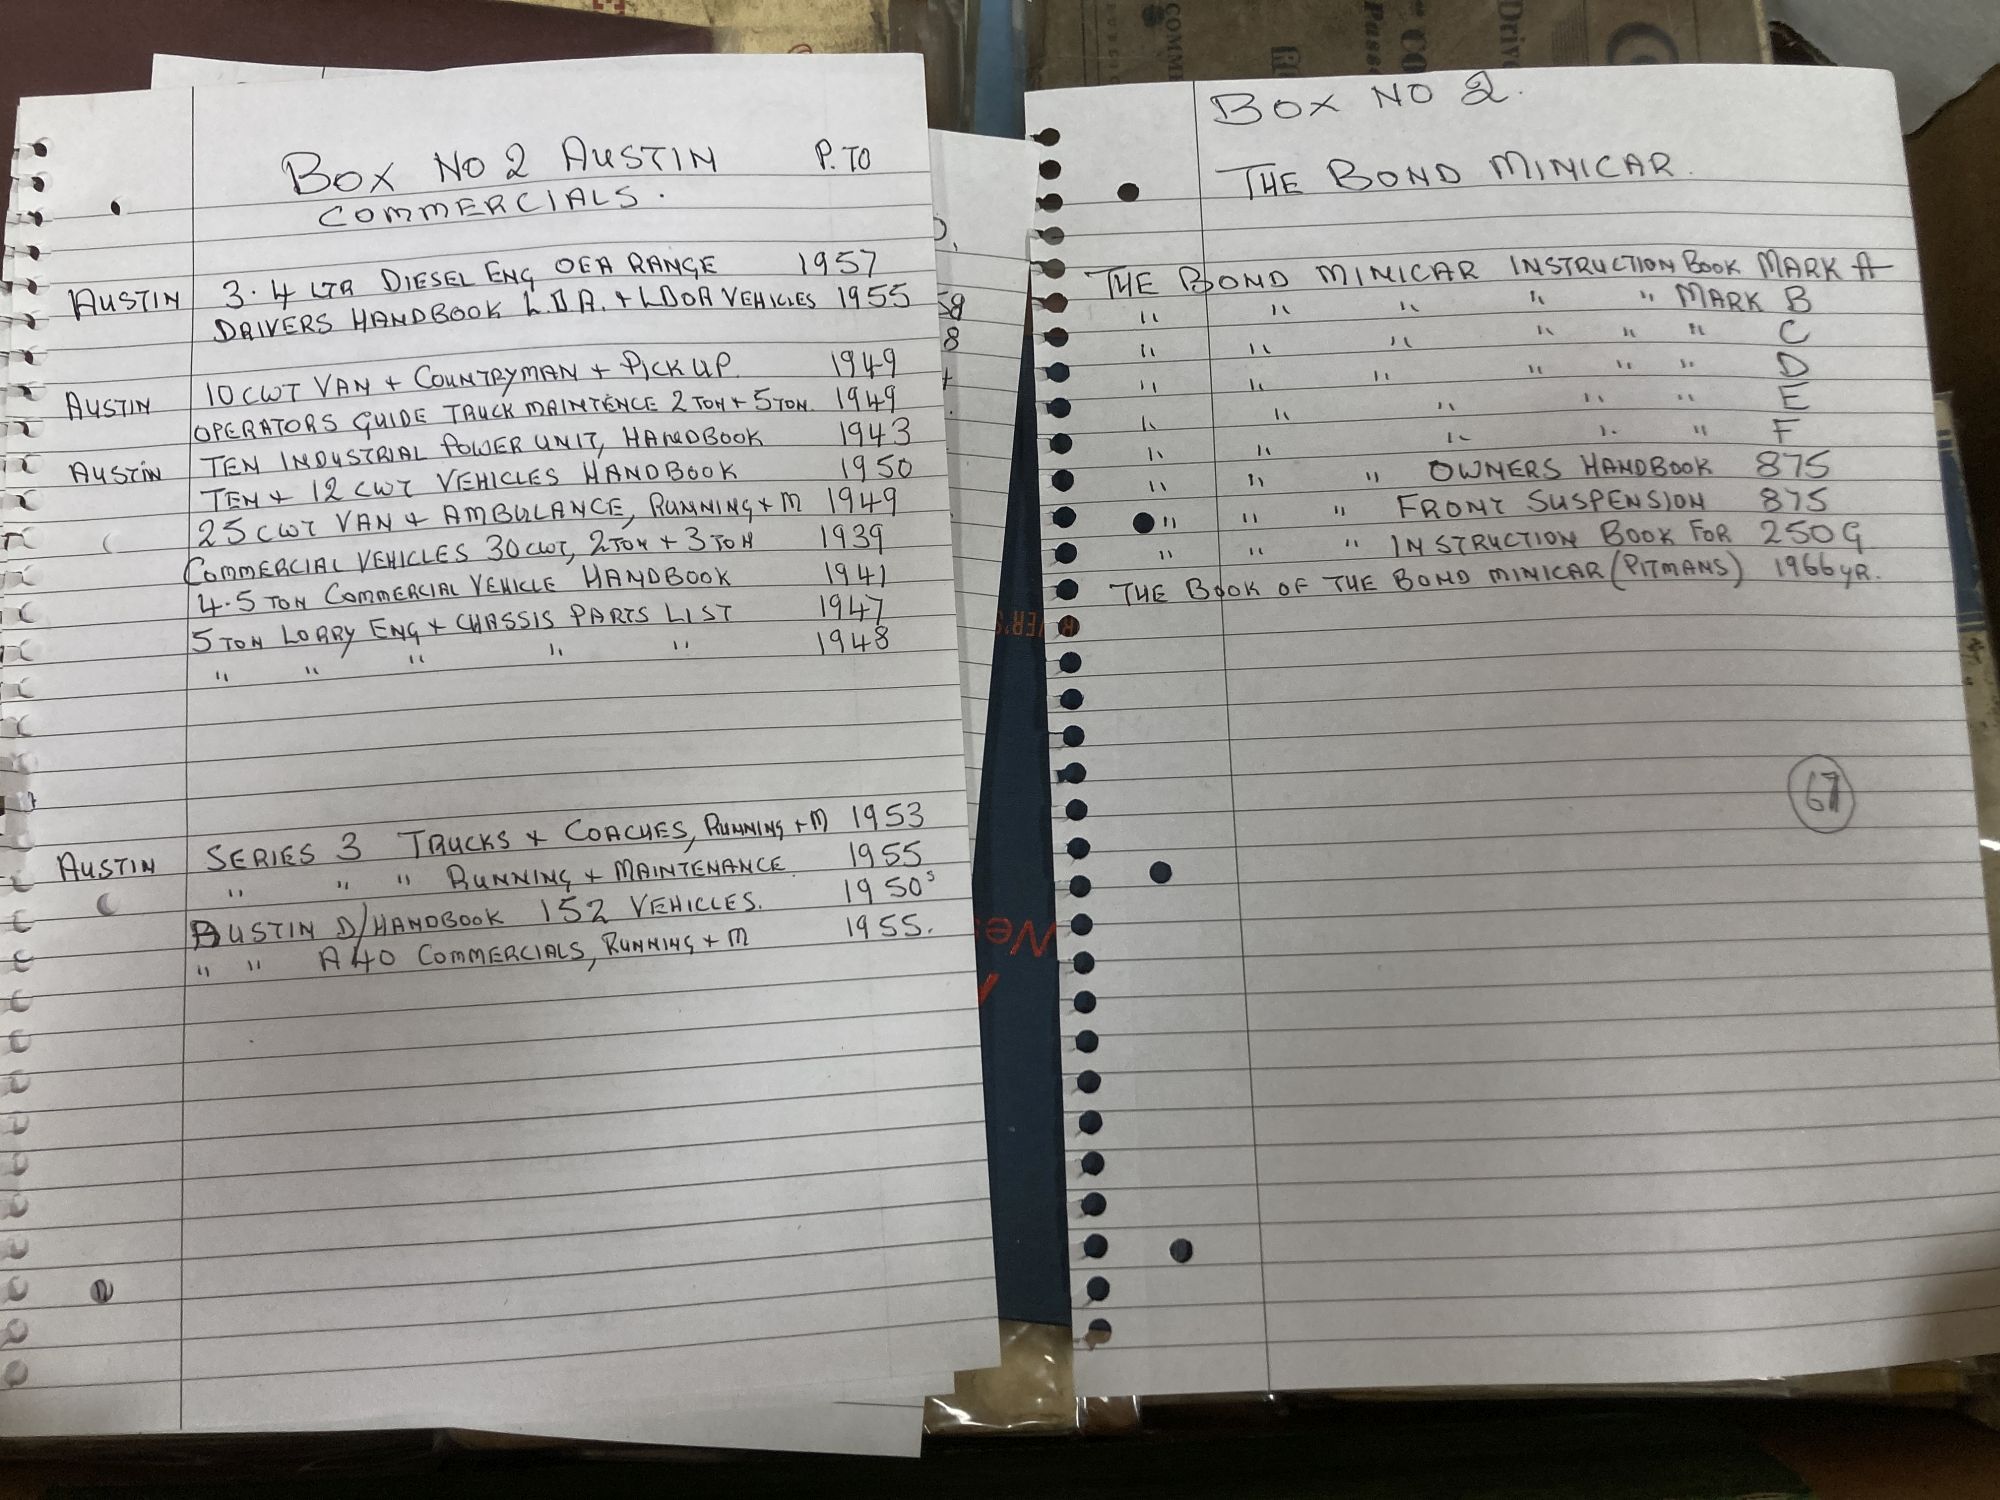 BOX NO 2 AUSTIN P.TO
COMMERCIALS.
3.4 LTR DIESEL ENG OEA RANGE 1957
AUSTIN DRIVERS HANDBOOK L.D A. + LDOA VEHICLES 1955
10 CWT VAN + COUNTRYMAN + PICK UP. 1949
AUSTIN OPERATORS GUIDE TRUCK MAINTENCE 2 TON + 5 TON. 1949
TEN INDUSTRIAL POWER UNIT, HANDBOOK 1943
AUSTIN TEN + 12 CWT VEHICLES HANDBOOK 1950
25 CWT VAN + AMBULANCE, RUNNING + M 1949
COMMERCIAL VEHICLES 30 CWT, 2 TON + 3 TON 1939
4.5 TON COMMERCIAL VEHICLE HANDBOOK 1941
5 TON LORRY ENG + CHASSIS PARTS LIST 1947
" " " " " 1948
AUSTIN SERIES 3 TRUCKS + COACHES, RUNNING + M 1953
" " " RUNNING + MAINTENANCE. 1955
AUSTIN D/HANDBOOK 152 VEHICLES. 1950s
" " A40 COMMERCIALS, RUNNING + M 1955.
BOX NO 2.
THE BOND MINICAR.
THE BOND MINICAR INSTRUCTION BOOK MARK A
" " " " " MARK B
" " " " " " C
" " " " " " D
" " " " " E
" " " " " F
" " " OWNERS HANDBOOK 875
" " " FRONT SUSPENSION 875
" " " INSTRUCTION BOOK FOR 250 G
THE BOOK OF THE BOND MINICAR (PITMANS) 1966 YR.
67